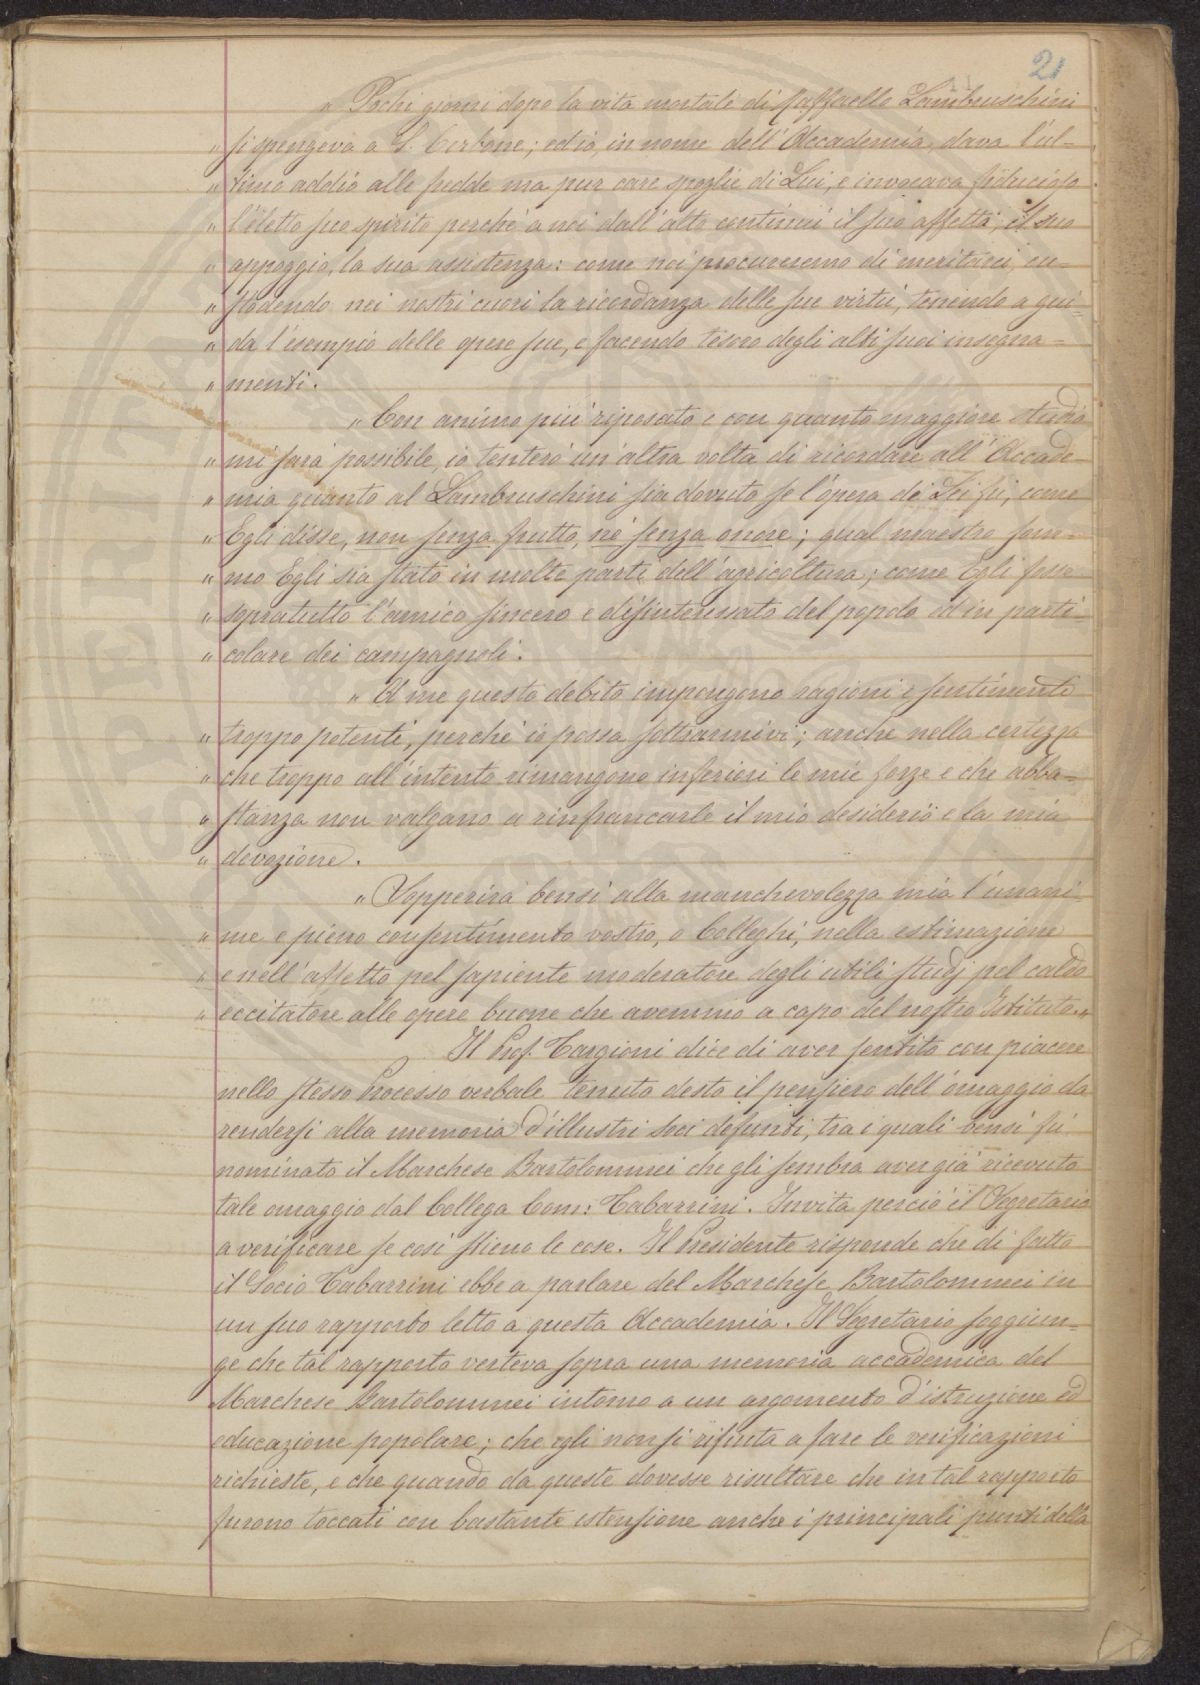 21
" Pochi giorni dopo la vita mortale di Raffaello Lambruschini
" si spengeva a S. Cerbone; ed io, in nome dell'Accademia, dava l'ul-
" timo addio alle fredde ma pur care spoglie di Lui, e invocava fiducioso
" l'eletto suo spirito perchè a noi dall'alto continui il suo affetto, il suo
" appoggio, la sua assistenza: come noi procureremo di meritarci, cu-
" stodendo nei nostri cuori la ricordanza delle sue virtù, tenendo a gui-
" da l'esempio delle opere sue, e facendo tesoro degli alti suoi insegna-
" menti.
" Con animo più riposato e con quanto maggiore studio
" mi sarà possibile, io tenterò un'altra volta di ricordare all'Accade-
" mia quanto al Lambruschini sia dovuto se l'opera di Lei fù, come
" Egli disse, non senza frutto, nè senza onore; qual maestro som-
" mo Egli sia stato in molte parti dell'agricoltura; come Egli fosse
" sopratutto l'amico sincero e disinteressato del popolo ed in parti-
" colare dei campagnoli.
" A me questo debito impongono ragioni e sentimenti
" troppo potenti, perchè io possa sottrarmivi; anche nella certezza
" che troppo all'intento rimangono inferiori le mie forze e che abba-
" stanza non valgano a rinfrancarle il mio desiderio e la mia
" devozione.
" Sopperirà bensì alla manchevolezza mia l'unani-
" me e pieno consentimento vostro, o Colleghi, nella estimazione
" e nell'affetto pel sapiente moderatore degli utili studj pel caldo
" eccitatore alle opere buone che avemmo a capo del nostro Istituto. "
Il Prof. Targioni dice di aver sentito con piacere
nello stesso Processo verbale tenuto desto il pensiero dell'omaggio da
rendersi alla memoria d'illustri soci defunti, tra i quali bensì fù
nominato il Marchese Bartolommei che gli sembra aver già ricevuto
tale omaggio dal Collega Com: Tabarrini. Invita perciò il Segretario
a verificare se così stieno le cose. Il Presidente risponde che di fatto
il Socio Tabarrini ebbe a parlare del Marchese Bartolommei in
un suo rapporto letto a questa Accademia. Il Segretario soggiun-
ge che tal rapporto verteva sopra una memoria accademica del
Marchese Bartolommei intorno a un argomento d'istruzione ed
educazione popolare; che egli non si rifiuta a fare le verificazioni
richieste, e che quando da queste dovesse risultare che in tal rapporto
furono toccati con bastante estensione anche i principali punti della